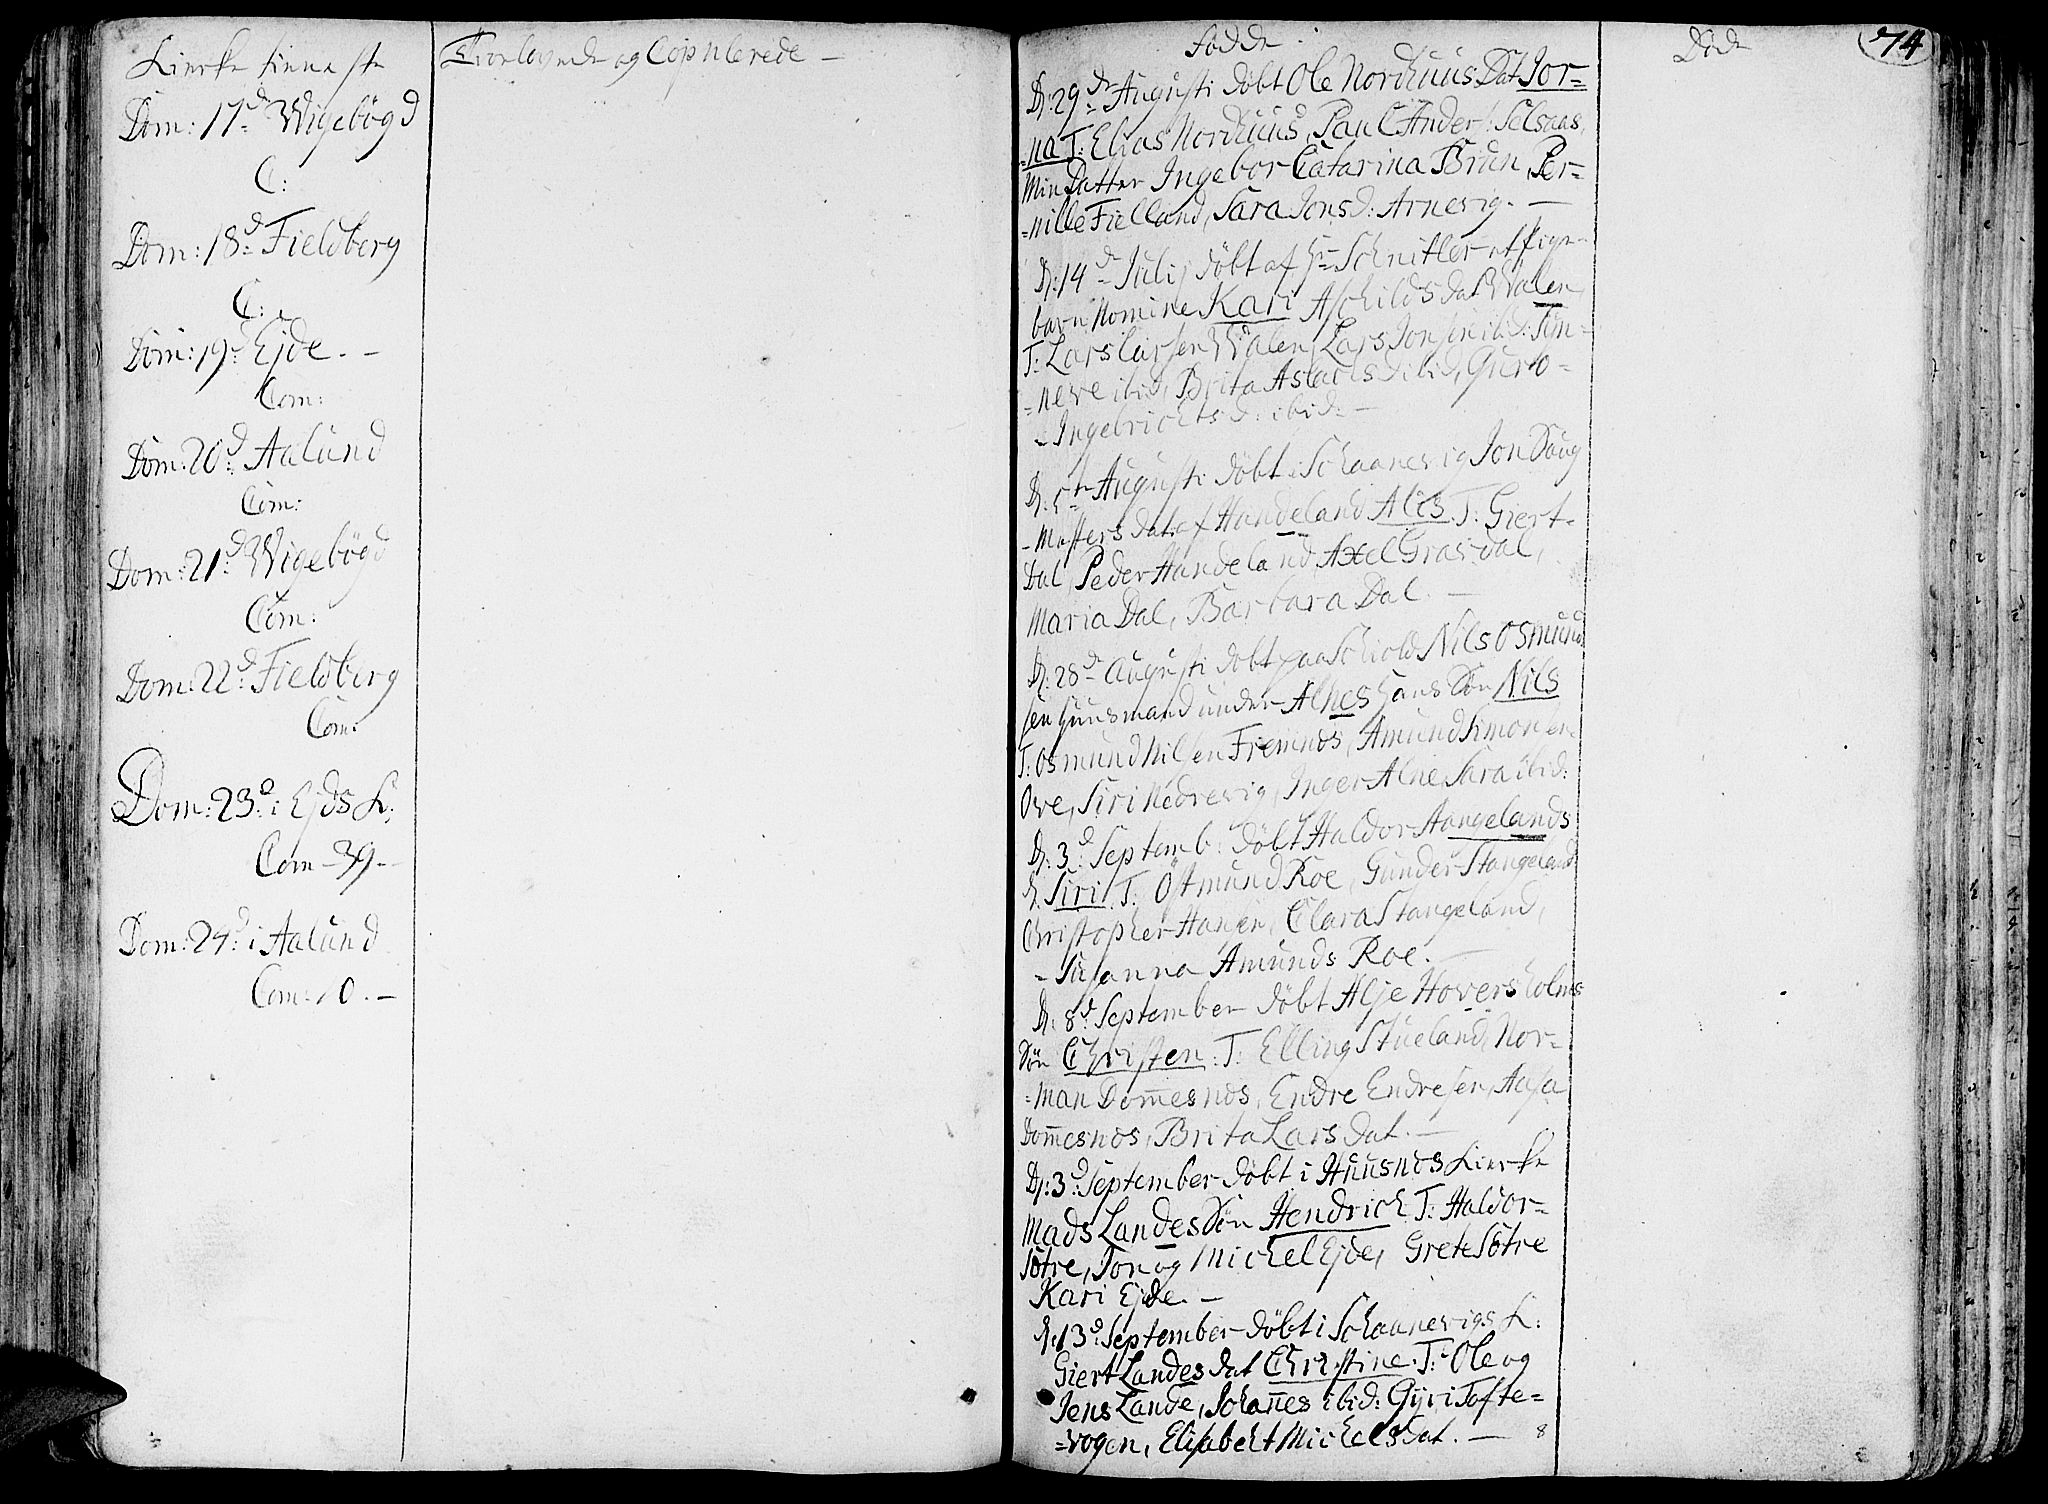 Kircke tienneste
Dom: 17d: Wigebögd
C:
Dom: 18d: Fieldberg
C:
Dom: 19d Ejde. –
Com:
Dom: 20d: Aalund
Com:
Dom: 21d: Wigebögd
Com:
Dom: 22d: Fieldberg
Com:
Dom: 23d: i Ejds K:
Com – 39 –
Dom: 24d: i Aalund
Com: 10. –
Troelovede og Copulerede –
födde.
D: 29de Augusti döbt Ole Nordhuus Dat Jor=
=na T: Elias Nordhuus, Paul Anders: Selsaas,
Min Datter Ingebor Catarina Brun, Per=
=nille Fielland, Sara Jonsd: Arnevig. –
D: 14d Julij döbt af Hr Schnitler et pige
barn Nomine Kari Aschilds dat Walen
T: Lars Larsen Walen, Lars Jonsen ibid: Sin=
=neve ibid, Brita Aslacks d ibid, Guro=
=Ingebrichts d: ibid: –
D: 5te Augusti döbt i Schaanevig Jon Saug
=Mesters dat af Handeland Alis T: Giert=
Dal, Peder Handeland, Axel Grasdal,
Maria Dal, Barbara Dal. –
D: 28d Augusti döbt paa Schold Nils Osmund
sen Huusmand under Alnes Hans Sön Nils
T: Osmund Nilsen Fremnes, Amund Simonsen
Ove, Siri Nedrevig, Inger Alne, Sara ibid:
D: 3d: Septemb: döbt Haldor Aangelands
d. Siri T: Östmund Roe, Gunder Stangeland
Christopher Hansen, Clara Stangeland,
=Susanna Amunds Roe. –
D: 8d: September döbt Alje Hoversholms
Sön Christen: T: Elling Stueland, Nor=
=man Dom̅esnes, Endre Endresen, Aasa
Dom̅esnes, Brita Lars dat. –
D: 3d: September döbt i Huusnes Kircke
Mads Landes Sön Hendrich T: Haldor=
Sötre, Jon og Michel Ejde, Grete Sötre
Kari Ejde. –
D: 13d: September döbt i Schaanevigs K:
Giert Landes dat Christine. T: Ole og
Jens Lande, Johan̅es ibid: Gyri Tofte=
=vogen, Elisabeht Michels dat. – 8
Döde
74